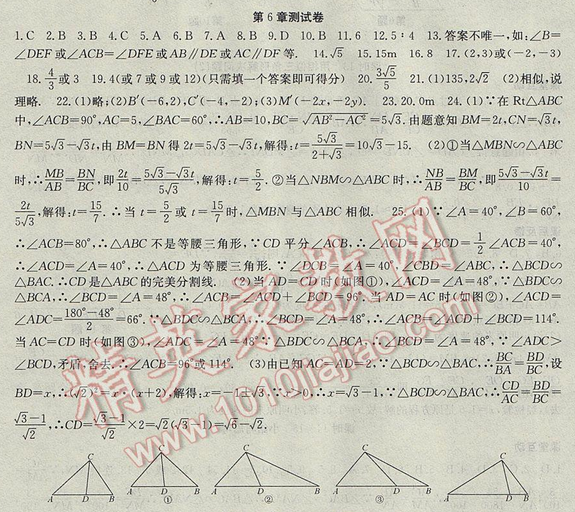 第6章测试卷
1.C 2.B 3.B 4.C 5.A 6.B 7.A 8.B 9.D 10.B 11.6 12.5∶4 13.答案不唯一,如:∠B=
∠DEF或∠ACB=∠DFE或AB∥DE或AC∥DF等. 14.√5 15.15m 16.8 17.(2,3)或(-2,-3)
18.4/3或3 19.4(或7或9或12)(只需填一个答案即可得分) 20.3√5/5 21.(1)135,2√2 (2)相似,说
理略. 22.(1)略;(2)B′(-6,2),C′(-4,-2);(3)M′(-2x,-2y). 23.20.0m 24.(1)∵在Rt△ABC
中,∠ACB=90°,AC=5,∠BAC=60°,∴AB=10,BC=√(AB²-AC²)=5√3.由题意知BM=2t,CN=√3t,
BN=5√3-√3t,由BM=BN得2t=5√3-√3t,解得:t=5√3/(2+√3)=10√3-15. (2)①当△MBN∽△ABC
时,∴MB/AB=BN/BC,即2t/10=(5√3-√3t)/5√3,解得:t=5/2. ②当△NBM∽△ABC时,∴NB/AB=BM/BC,即(5√3-√3t)/10=
2t/5√3,解得:t=15/7. ∴当t=5/2或t=15/7时,△MBN与△ABC相似. 25.(1)∵∠A=40°,∠B=60°,
∴∠ACB=80°,∴△ABC不是等腰三角形,∵CD平分∠ACB,∴∠ACD=∠BCD=1/2∠ACB=40°,
∴∠ACD=∠A=40°,∴△ACD为等腰三角形.∵∠DCB=∠A=40°,∠CBD=∠ABC,∴△BCD∽
△BAC.∴CD是△ABC的完美分割线. (2)当AD=CD时(如图①),∠ACD=∠A=48°,∵△BDC∽
△BCA,∴∠BCD=∠A=48°,∴∠ACB=∠ACD+∠BCD=96°.当AD=AC时(如图②),∠ACD=
∠ADC=(180°-48°)/2=66°.∵△BDC∽△BCA,∴∠BCD=∠A=48°,∴∠ACB=∠ACD+∠BCD=114°.
当AC=CD时(如图③),∠ADC=∠A=48°∵△BDC∽△BCA,∴∠BCD=∠A=48°,∵∠ADC>
∠BCD,矛盾,舍去.∴∠ACB=96°或114°. (3)由已知AC=AD=2,∵△BCD∽△BAC,∴BC/BA=BD/BC,设
BD=x,∴(√2)²=x·(x+2),解得:x=-1±√3.∵x>0,∴x=√3-1,∵△BCD∽△BAC,∴CD/AC=BD/BC=
(√3-1)/√2,∴CD=(√3-1)/√2×2=√2(√3-1)=√6-√2.
C A D B
C A D B ①
C A D B ②
C A D B ③
C A D B
精英家教网
www.1010jiajiao.com